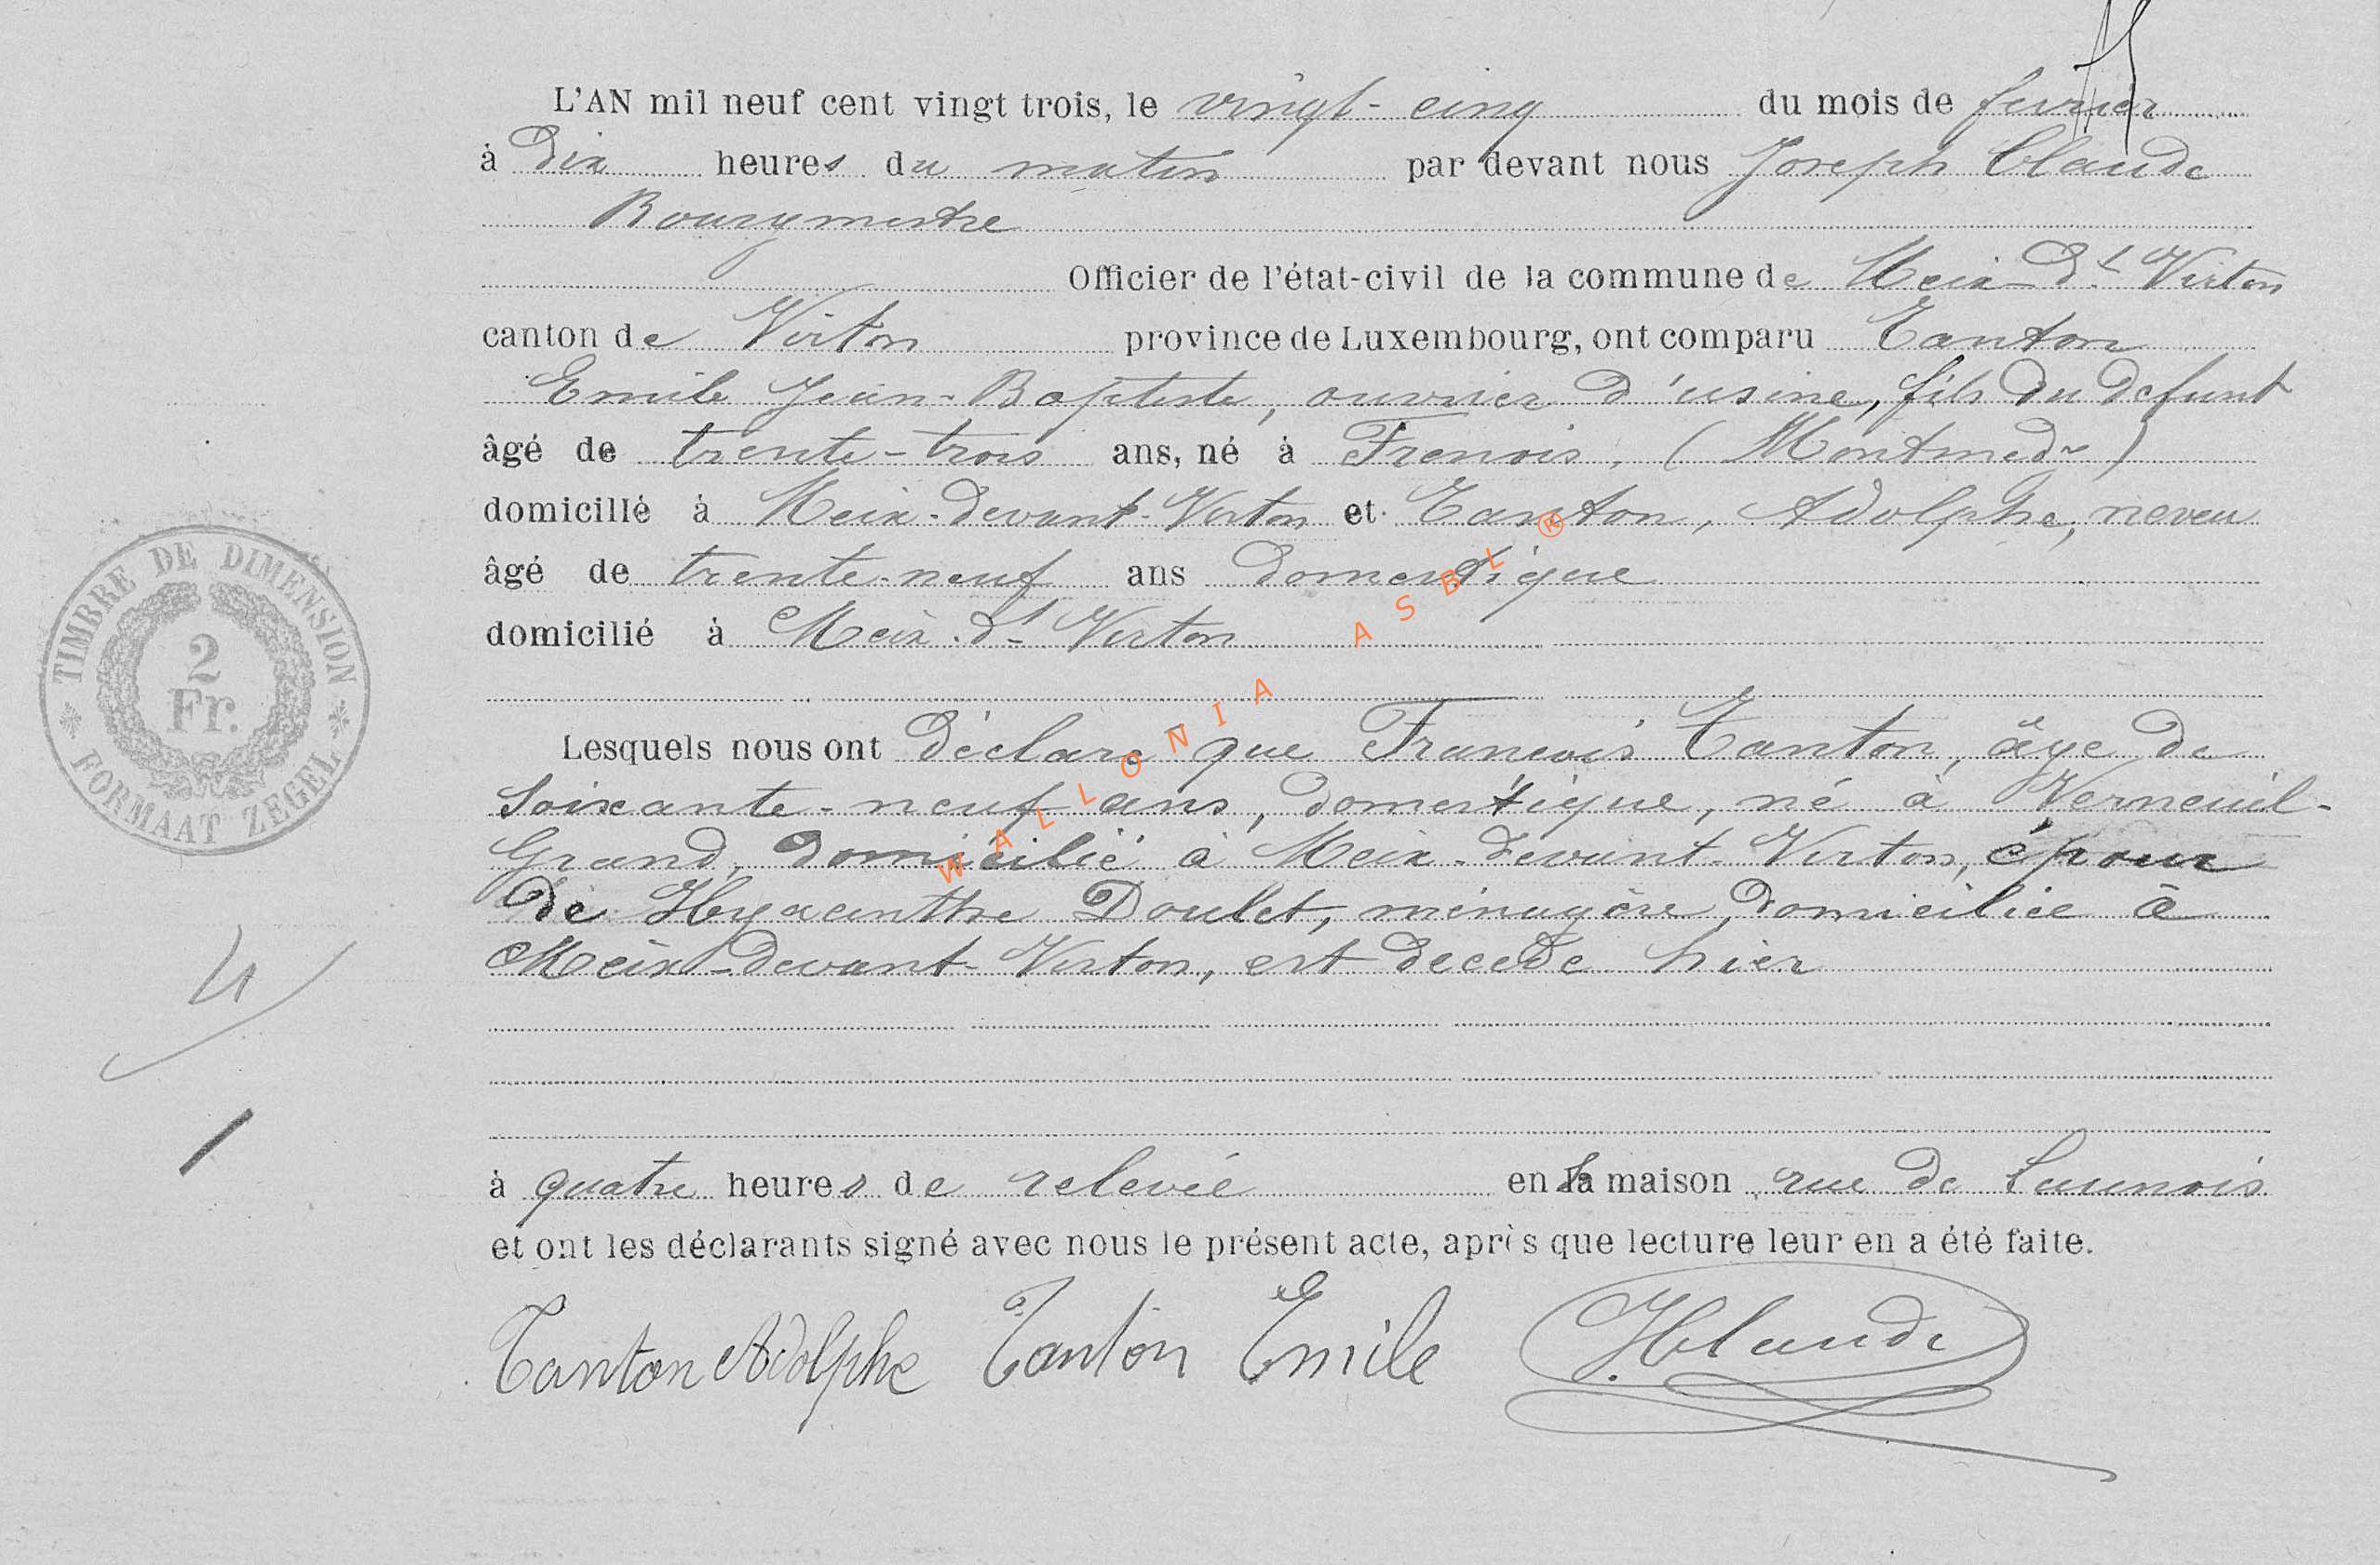 L'AN mil neuf cent vingt trois, le vingt-cinq du mois de fevrier
à dix heures du matin par devant nous Joseph Claude
Bourgmestre
Officier de l'état-civil de la commune de Meix-dt Virton
canton de Virton province de Luxembourg, ont comparu Tanton
Emile Jean-Baptiste, ouvrier d'usine, fils du defunt
âgé de trente-trois ans, né à Frenois, (Montmedy)
domicilié à Meix-devant-Virton et Tanton, Adolphe, neveu
âgé de trente-neuf ans domestique
domicilié à Meix-dt Virton
Lesquels nous ont déclare que Francois Tanton, âge de
soixante-neuf ans, domestique, né à Verneuil-
Grand, domicilié à Meix-devant-Virton, époux
de Hyacinthe Doulet, ménagère, domiciliée à
Meix-devant-Virton, est decede hier
à quatre heures de relevée en sa maison, rue de Launois
et ont les déclarants signé avec nous le présent acte, après que lecture leur en a été faite.
Tanton Adolphe Tanton Emile J Claude
TIMBRE DE DIMENSION
2
Fr.
FORMAAT ZEGEL
4
WALLONIA ASBL ®